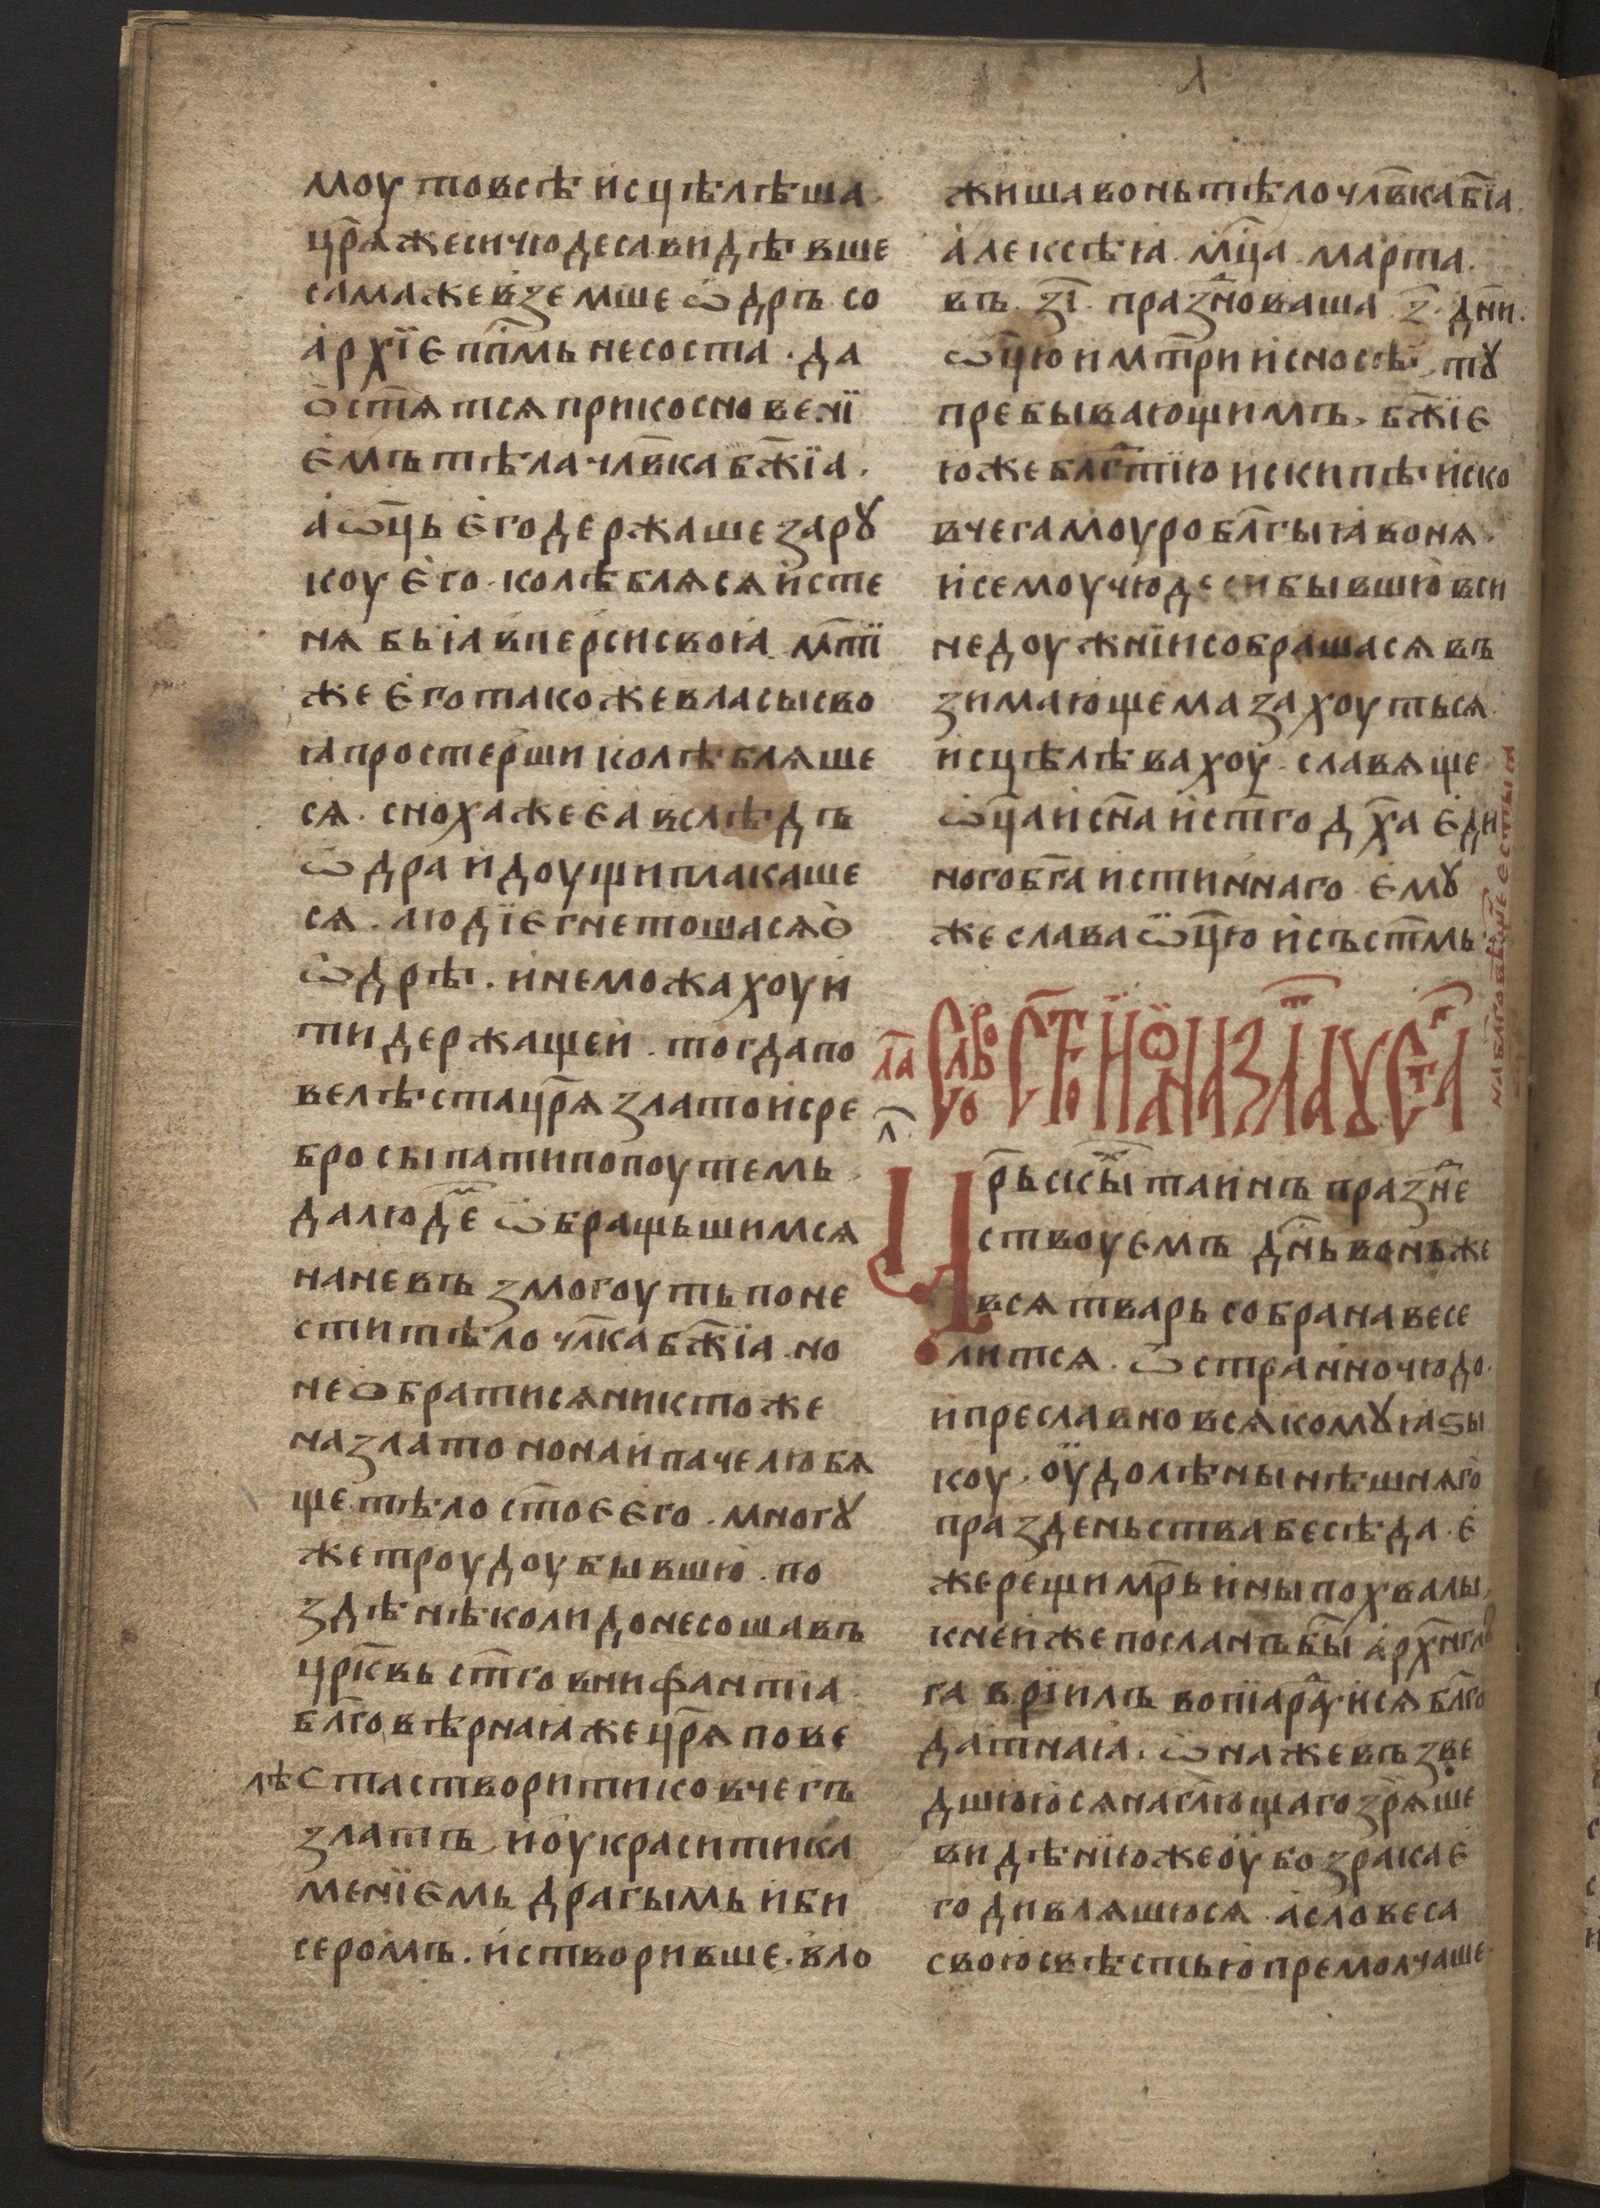 моу то всѣ исцѣлѣша.
цр҃ѧ же си чюдеса видѣвше
сама же вземше ѡдръ со
архїеп҃пмь несоста. да
ѻст҃ѧтсѧ прикосновенї
емъ тѣла чл҃вка бж҃їа.
а ѡц҃ь его держаше за рꙋ
коу его. колѣблѧсѧ и сте
нѧ бьіа в перси своіа. мт҃ї
же его тако же власы сво
іа простерши колѣблѧше
сѧ. сноха же еа вслѣдъ
ѡдра идоущи плакаше
сѧ. людїе гнетошасѧ ѻ
ѡдрѣ. и не можахоу и
ти держащеи. тогда по
велѣста цр҃ѧ злато и сре
бро сыпати по поутемь.
да люде҃ ѡбращьшимсѧ
на не възмогоуть поне
сти тѣло чл҃ка бж҃їа. но
не ѻбратисѧ никто же
на злато но наипаче любѧ
ще тѣло ст҃ое его. многꙋ
же троудоу бывшю. по
здѣ нѣколи донесоша въ
цр҃квь ст҃го внифантіа.
бл҃говѣрнаіа же цр҃ѧ пове
лѣста створити ковчегъ
златъ, и оукрасити ка
менїемь драгымь и би
серомъ. и створивше. вло
жиша вонь тѣло чл҃вка б҃їа.
алексѣіа. мц҃а. марта.
въ. з҃і. празн҃оваша. з҃. дн҃и.
ѡц҃ю и мт҃ри и сносѣ, тꙋ
пребывающимъ. бж҃їе
ю же блг҃тїю искипѣ ис ко
вчега моуро бл҃гыіа вонѧ.
и семоу чюдеси бывшю вси
недоужнїи собрашасѧ въ
зимающе мазахоутьсѧ.
исцѣлѣвахоу. славѧще
ѡц҃а и сн҃а и ст҃го дх҃а еди
ного бг҃а истиннаго. емꙋ
же слава ѡц҃ю и съ ст҃мь.
на блг҃овѣще
л҃а
Слово ст҃го иѡана златꙋстаг҃
л҃
Цр҃ьскы҃х таинъ празн҃е
ствоуемъ дн҃ь вонь же
всѧ тварь собрана весе
литсѧ. ѽ странно чюдо.
и преславно всѧкомꙋ іаꙁы
коу. оудолѣ нынѣшнѧго
празденьства бесѣда. е
же рещи мр҃ьины похвалы,
к неи же посланъ бы҃ арх҃нгл
гавріилъ вопїа ра҃уисѧ блг҃о
датнаіа. ѡна же възве
дшюю сѧ на гл҃ющаго зрѧше
видѣнїю же оубо зрака е
го дивлѧшюсѧ. а словеса
своею свѣстью премолчаше.